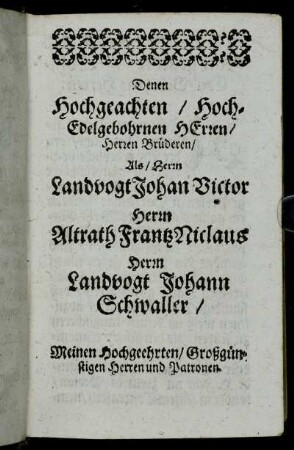 Denen
Hochgeachten / Hoch-
Edelgebohrnen HErren /
Herren Brüderen /
Als / Herrn
Landvogt Johan Victor
Herrn
Altrath Frantz Niclaus
Herrn
Landvogt Johann
Schwaller /
Meinen Hochgeehrten / Großgün-
stigen Herren und Patronen.